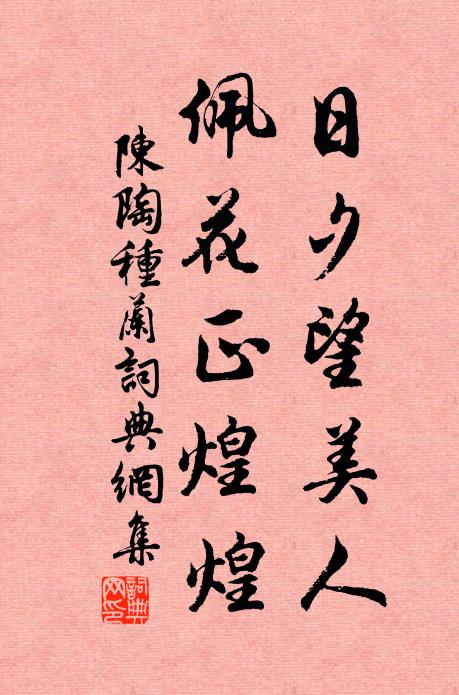 日夕望美人
佩花正煌煌
陳陶種蘭詞典網集
詞典網印